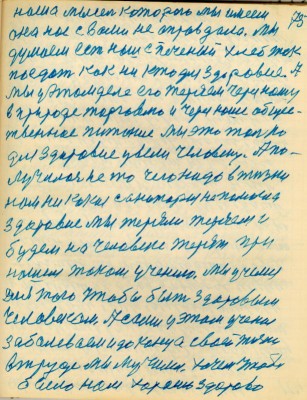 наша мысль которого мы имеем
она нас с вами не оправдала. Мы
думаем
поедат как ни кто для здоровие. А
мы у этом деле его теряем через нашу
в природе торговлю и через наше обще-
твенное питание мы это только
для здоровие увели человеку. А по-
лучилося не то чего надо в жизни
нам ни какая санатория не помогла
здоровие мы теряли теряем и
будем на человеке терять при
нашем таком учению. Мы учимся
для того чтобы быть здоровым
человеком А сами у этом учении
заболеваем и до конца своей жизни
в труде мы мучимся, хочем чтобы
было нам хорошо здорово